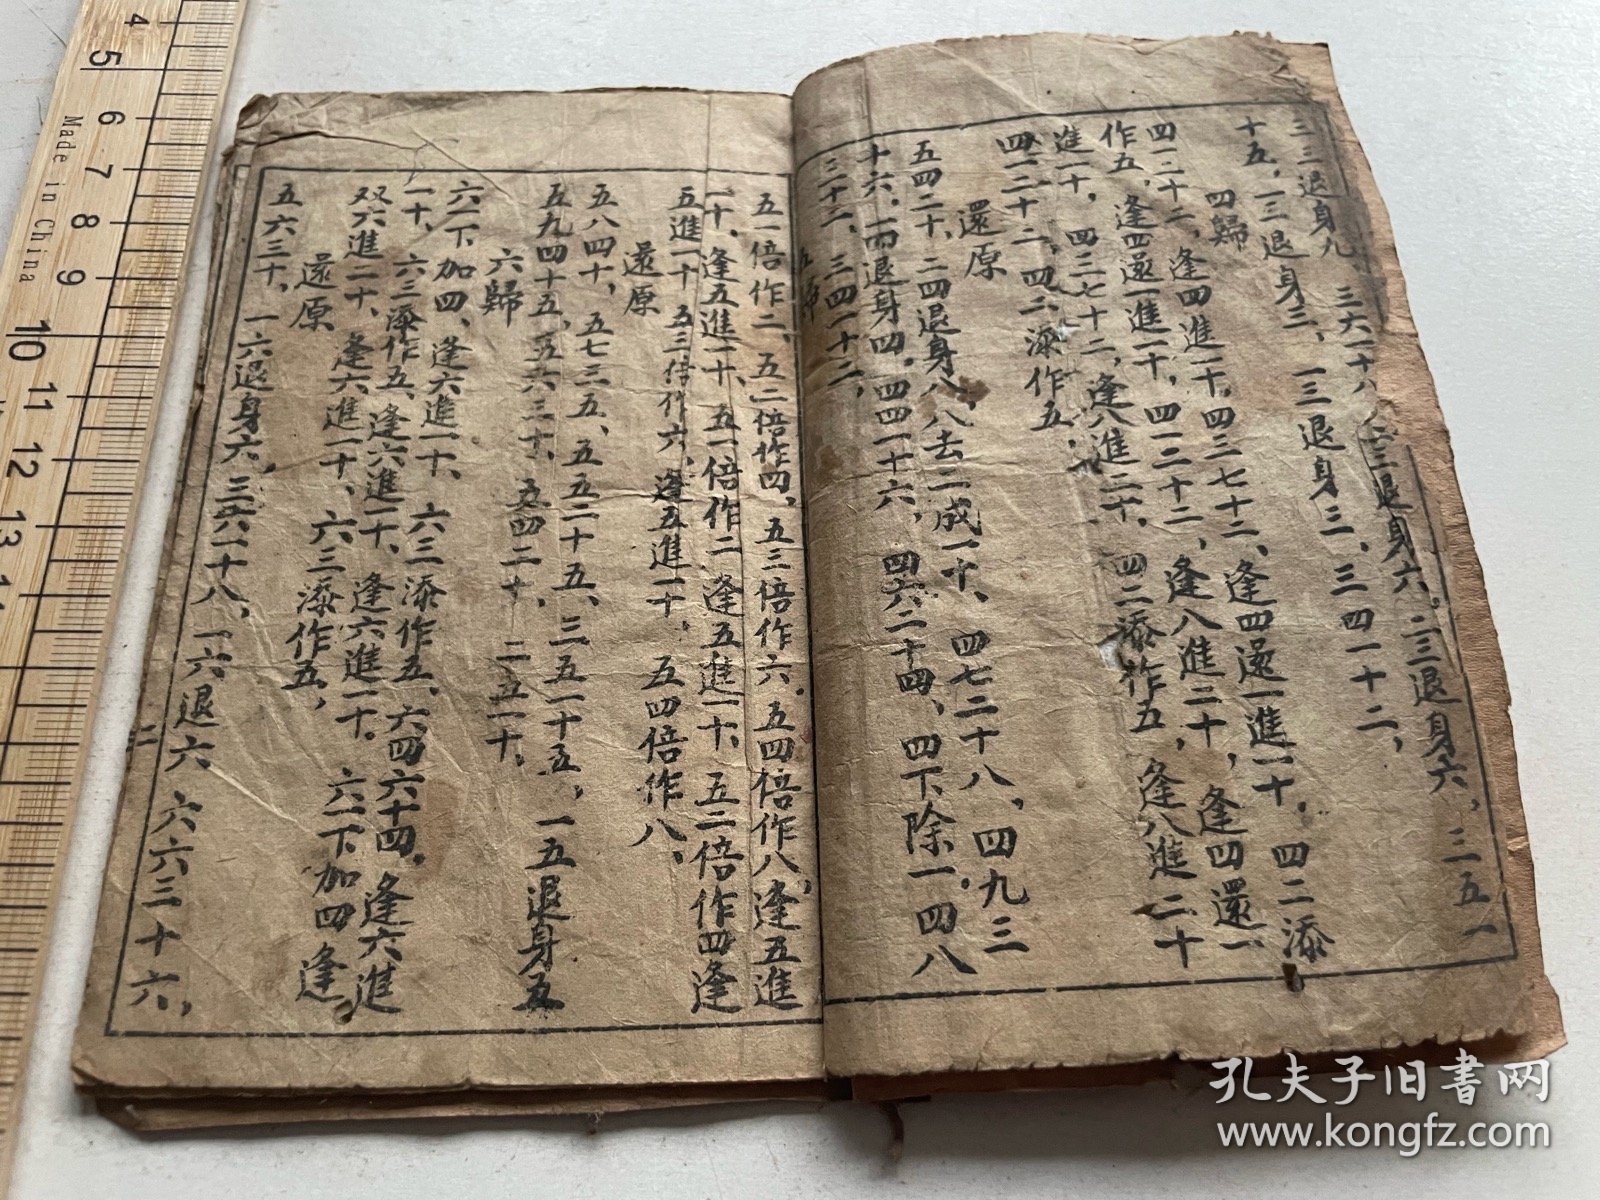 三三退身九、三六一十八、三三退身六。二三退身六，三五一
十五，一三退身三、一三退身三、三四一十二，
四歸
四一二十二，逢四進一十，四三七十二、逢四還一進一十，四二添
作五，逢四還一進一十，四一二十二，逢八進二十，逢四還一
進一十，四三七十二，逢八進二十，四二添作五，逢八進二十
四一二十二，四二添作五，
還原
五四二十，二四退身八，八去二成一十、四七二十八，四九三
十六，一四退身四。四四一十六，四六二十四、四下除一，四八
三十二，三四一十二，
五歸
五一倍作二、五二倍作四、五三倍作六，五四倍作八逢五進
一十，逢五進一十，五一倍作二逢五進一十、五二倍作四逢
五進一十五三倍作六，逢五進一十，五四倍作八、
還原
五八四十，五七三五、五五二十五、三五一十五，一五退身五
五九四十五，五六三十，五四二十，二五一十，
六歸
六一下加四、逢六進一十、六二添作五、六四六十四，逢六進
一十，六三添作五、逢六進一十、逢六進一十。六一下加四逢
双六進二十、逢六進一十、六三添作五，
還原
五六三十，一六退身六，三六一十八，一六退六 六六三十六，
二
Made in China
4
5
6
7
8
9
10
11
12
13
孔夫子旧書网
www.kongfz.com